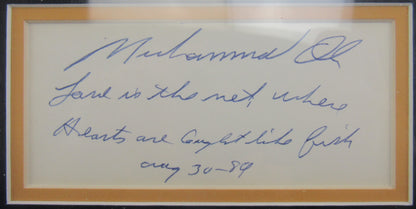 Muhammad Ali
Love is the net where
Hearts are caught like fish
aug 30-89